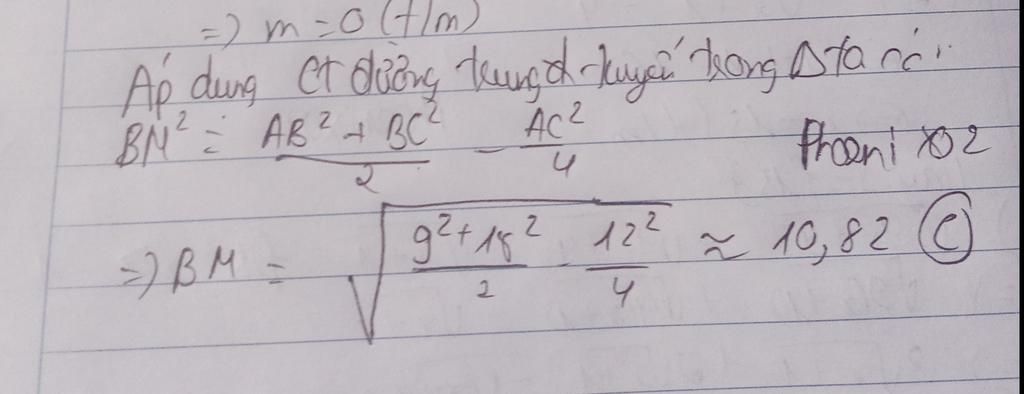 =) m = 0 (t/m)
Áp dụng CT đường trung tuyến trong Δ ta có:
BM² = (AB² + BC²)/2 - AC²/4
Phoenix02
=) BM = √((9² + 15²)/2 - 12²/4) ≈ 10,82 (C)